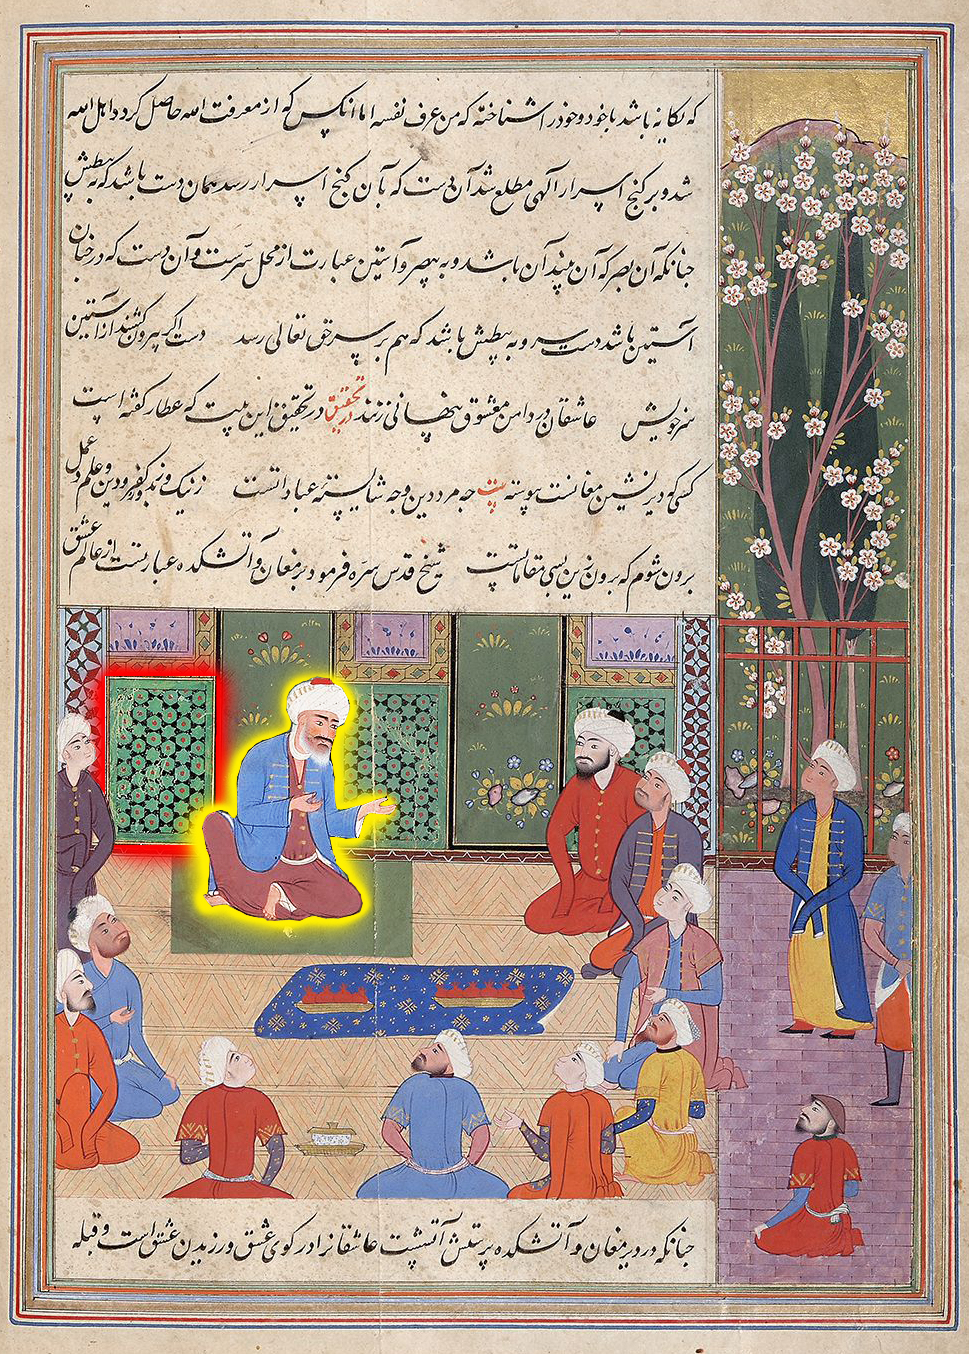 که یکانه باشد با خود و خود را شناخته که من عرف نفسه اما انکس که از معرفت الله حاصل کرد و اهل الله
شد و بر کنج اسرار آلهی مطلع شد آن دست که بآن کنج اسرار رسد همان دست باشد که به یبطش
چنانکه آن بصر که آن بیند آن باشد و به یبصر و آستین عبارت از محل سرست و آن دست که در چنان
آستین باشد دست سر و به یبطش باشد که هم بر سر حق تعالی رسد دست اکر بیرون کشند از آستین
سر خویش عاشقان در دامن معشوق پنهانی زنند در تحقیق این بیت که عطار کفته است
کسی که دیر نشین مغانست پیوسته بیت چه مرد دین و چه شایسته عباداتست ز نیک و بد و کفر و دین و علم و عمل
برون شوم که برون زین بسی مقاماتست شیخ قدس سره فرمود دیر مغان و آتشکده عبارتست از عالم عشق
چنانکه در دیر مغان و آتشکده پرستش آتشست عاشقانرا در کوی عشق ورزیدن عشق است و قبله